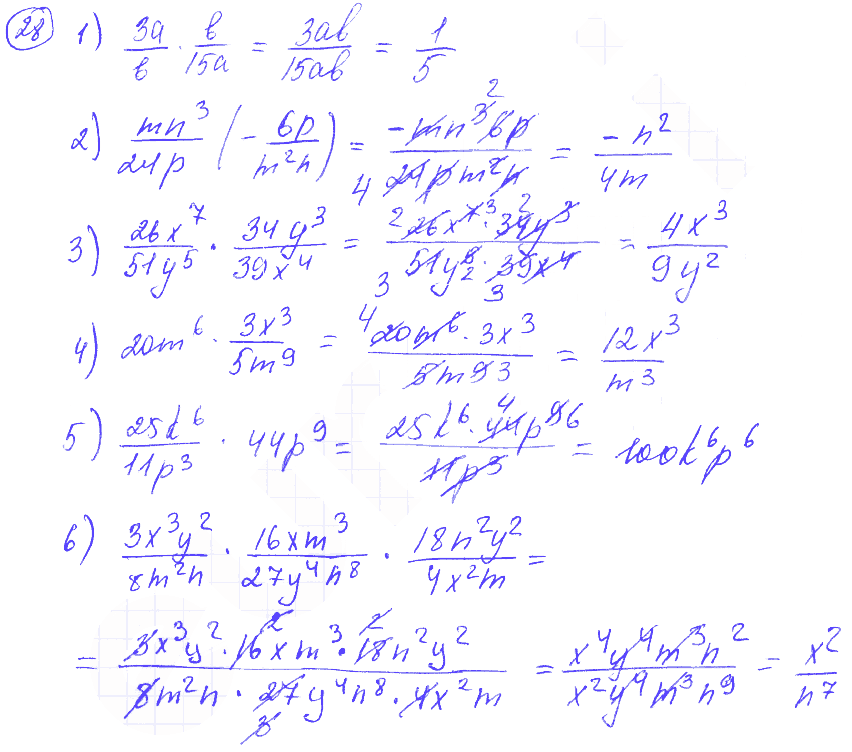 28 1) 3a/b · b/15a = 3ab/15ab = 1/5
2) mn³/24p (- 6p/m²n) = -mn³ ² 6p/4 24pm²n = -n²/4m
3) 26x⁷/51y⁵ · 34y³/39x⁴ = 2 26x⁷ ³ · 34 ² y³/3 51y⁵ 2 · 39 3 x⁴ = 4x³/9y²
4) 20m⁶ · 3x³/5m⁹ = 4 20m⁶ · 3x³/5m⁹ 3 = 12x³/m³
5) 25k⁶/11p³ · 44p⁹ = 25k⁶ · 44 4 p⁹ 6/11p³ = 100k⁶p⁶
6) 3x³y²/8m²n · 16xm³/27y⁴n⁸ · 18n²y²/4x²m =
= 3x³y² · 16 2 xm³ · 18 2 n²y²/8m²n · 27 3 y⁴n⁸ · 4x²m = x⁴y⁴m³n²/x²y⁴m³n⁹ = x²/n⁷